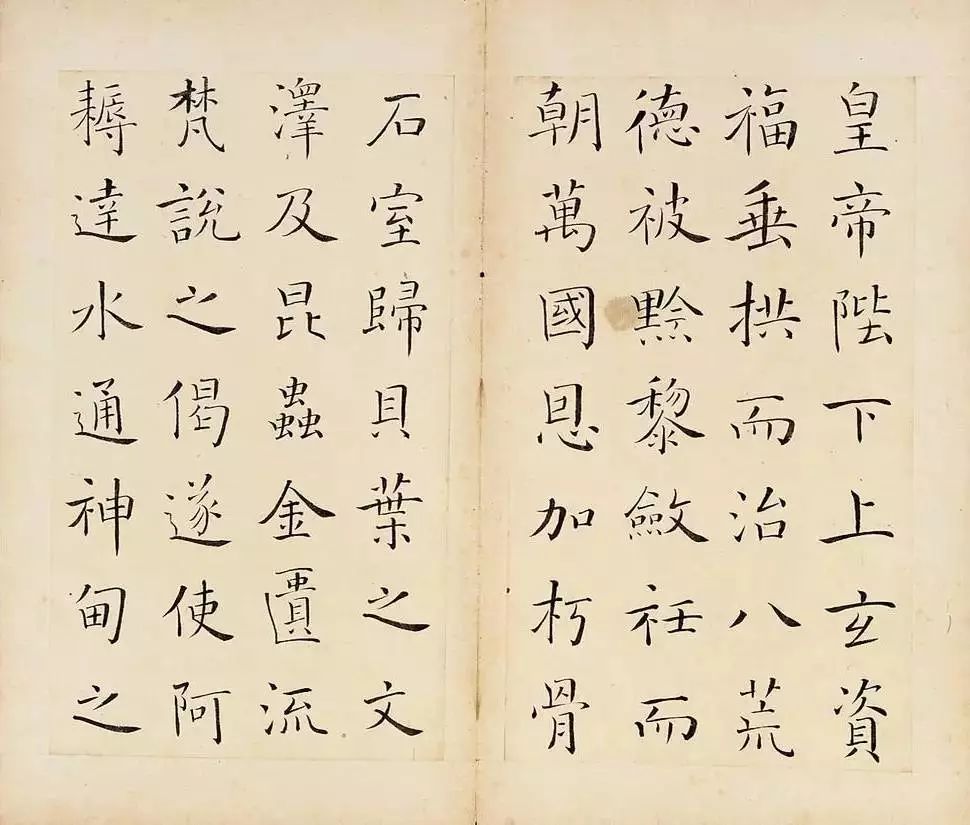 皇帝陛下上玄資
福垂拱而治八荒
德被黔黎斂衽而
朝萬國恩加朽骨
石室歸貝葉之文
澤及昆蟲金匱流
梵說之偈遂使阿
耨達水通神甸之